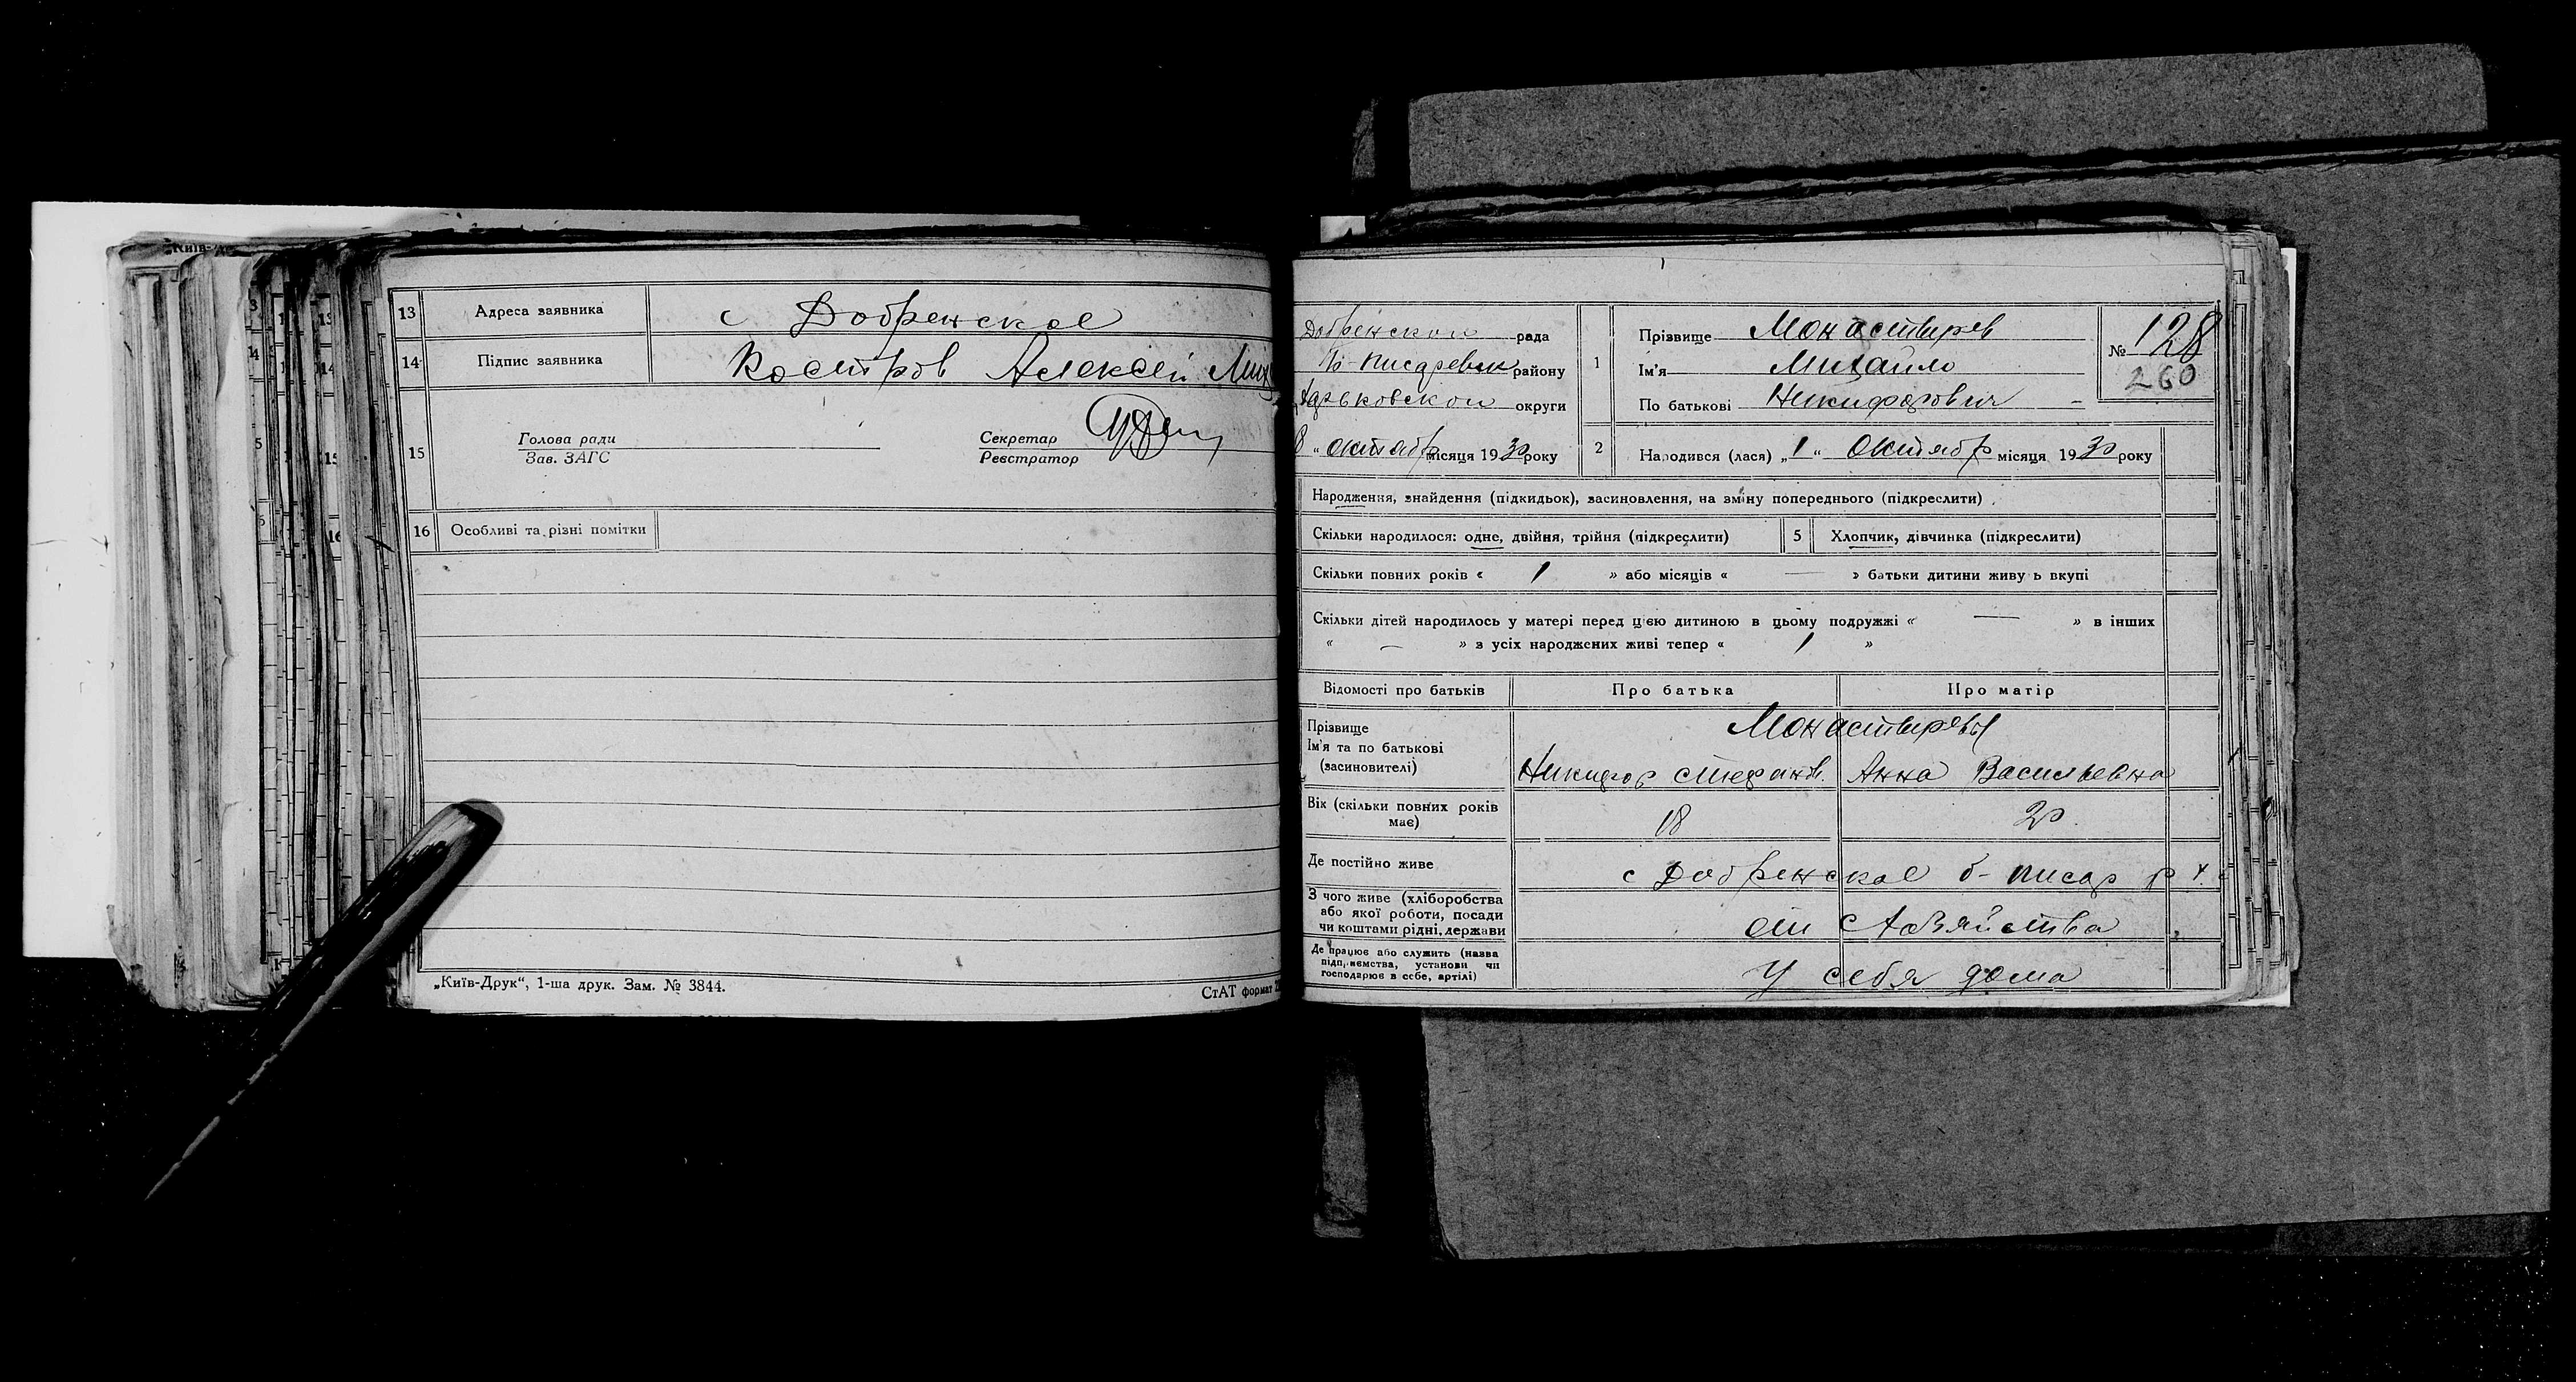 13 Адреса заявника с Добренское
14 Підпис заявника Костров Алексей
15 Голова ради
Зав. ЗАГС
Секретар
Реєстратор
16 Особливі та різні помітки
„Київ-Друк“, 1-ша друк. Зам. № 3844.
СтАТ формат
Добренской рада
району
Харьковской округи
октябр місяця 1930 року
1 Прізвище Монастирев
Ім'я Михайло
По батькові Никифорович
№ 128
260
2 Народився (лася) „1“ Октябр місяця 1930 року
Народження, знайдення (підкидьок), засиновлення, на зміну попереднього (підкреслити)
Скільки народилося: одне, двійня, трійня (підкреслити) 5 Хлопчик, дівчинка (підкреслити)
Скільки повних років « 1 » або місяців « — » батьки дитини живу ь вкупі
Скільки дітей народилось у матері перед цією дитиною в цьому подружжі « — » в інших
« — » з усіх народжених живі тепер « 1 »
Відомості про батьків Про батька Про матір
Прізвище Монастиревы
Ім'я та по батькові
(засиновителі) Никифор Стефанов. Анна Васильевна
Вік (скільки повних років
має) 18 20
Де постійно живе с Добренское б-писар р
З чого живе (хліборобства
або якої роботи, посади
чи коштами рідні, держави от Хозяйства
Де працює або служить (назва
підприємства, установи чи
господарює в себе, артілі) У себя дома